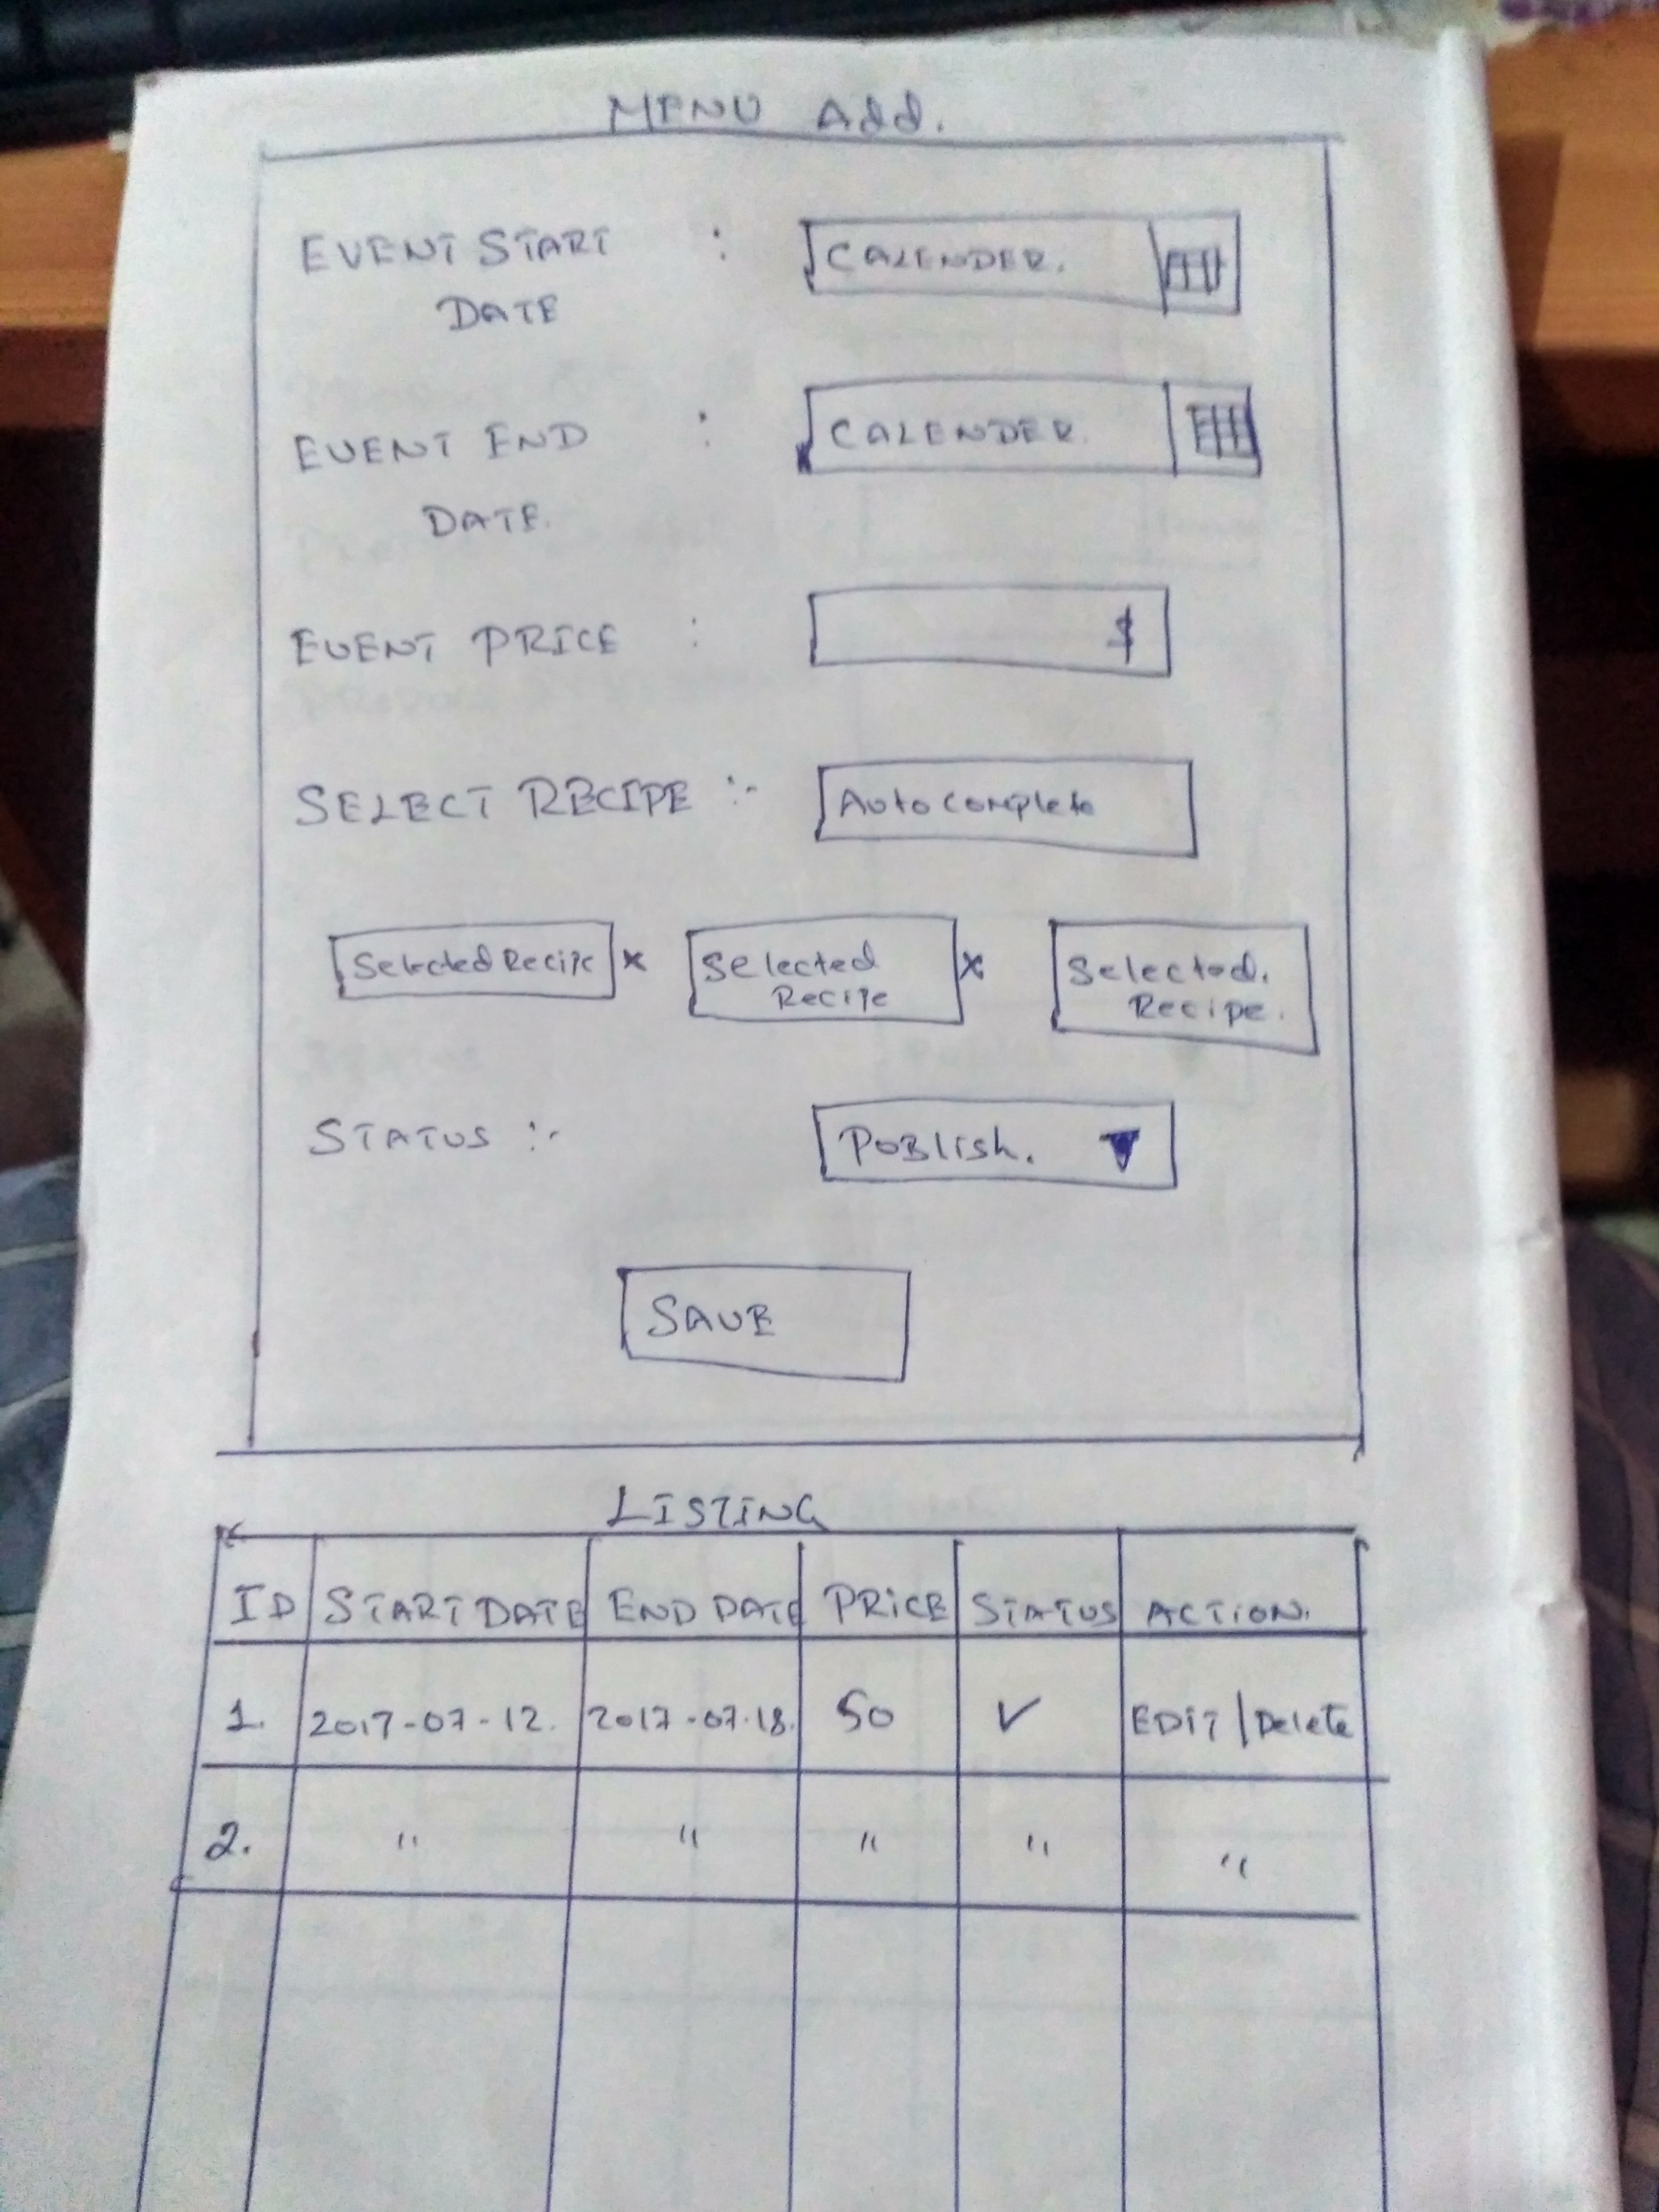 MENU Add.
EVENT START : CALENDER.
DATE
EVENT END : CALENDER.
DATE.
EVENT PRICE : $
SELECT RECIPE :- Autocomplete
Selected Recipe x Selected x Selected.
Recipe Recipe.
STATUS :- Publish. ▼
SAVE
LISTING
ID START DATE END DATE PRICE STATUS ACTION.
1. 2017-07-12. 2017-07-18. 50 ✓ EDIT | Delete
2. " " " " "